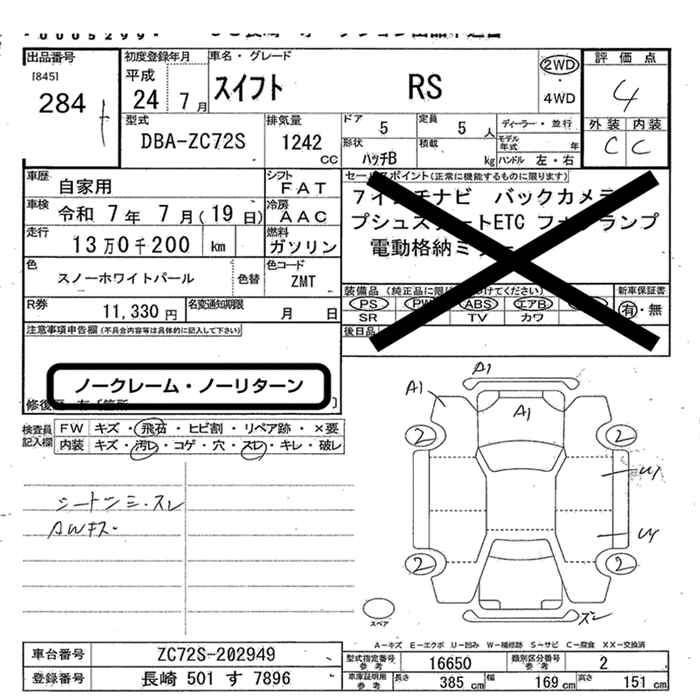 出品番号
[845]
284
初度登録年月
平成
24 7月
車名・グレード
スイフト RS
2WD
4WD
評価点
4
外装 内装
C C
型式
DBA-ZC72S
排気量
1242 CC
ドア 5
定員 5 人
形状
ハッチB
積載 kg
ディーラー・並行
モデル年式 年
ハンドル 左・右
車歴 自家用
シフト FAT
車検 令和 7年 7月(19日)
冷房 AAC
走行 13万0千200 km
燃料 ガソリン
色 スノーホワイトパール 色替
色コード ZMT
R券 11,330円
名変通知期限 月 日
セールスポイント(正常に機能するものに限ります)
7インチナビ バックカメラ
プシュスタートETC フォグランプ
電動格納ミラー
装備品
PS PW ABS エアB
SR TV カワ
新車保証書
有・無
後日品
注意事項申告欄(不具合内容等は具体的に記入して下さい)
ノークレーム・ノーリターン
検査員記入欄
FW キズ・飛石・ヒビ割・リペア跡・×要
内装 キズ・汚レ・コゲ・穴・スレ・キレ・破レ
シートシミ・スレ
AWキズ・
A1
A1
A1
2 2
U1
U1
2 2
ズレ
スペア
A-キズ E-エクボ U-凹み W-補修跡 S-サビ C-腐食 XX-交換済
車台番号 ZC72S-202949
登録番号 長崎 501 す 7896
型式指定番号 参考 16650
類別区分番号 参考 2
車庫証明用 参考 長さ 385 cm 幅 169 cm 高さ 151 cm